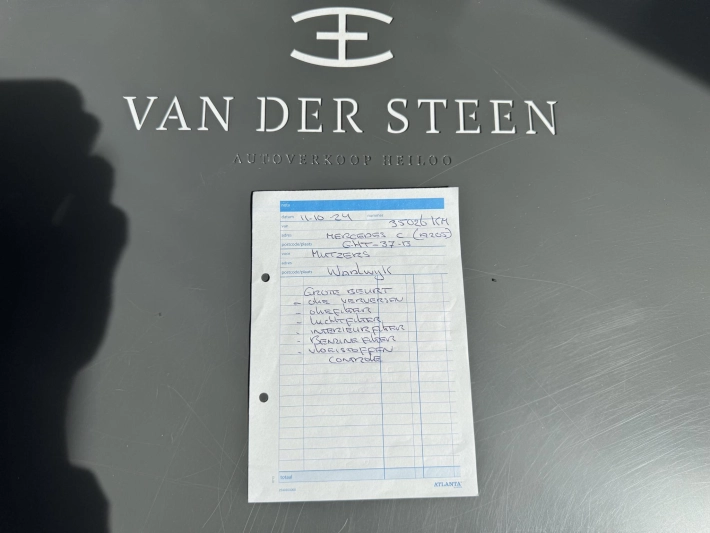 VAN DER STEEN
AUTOVERKOOP HEILOO
datum 11-10-24
35026 KM
MERCEDES C (A205)
postcode/plaats
naam
adres
postcode/plaats Waalwijk
GROTE BEURT
- OLIE VERVERSEN
- OLIEFILTER
- LUCHTFILTER
- INTERIEURFILTER
- BENZINEFILTER
- VLOEISTOFFEN
CONTROLE
totaal
ATLANTA